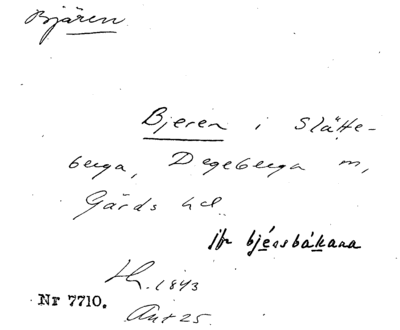 Bjären
Bjeren i Slätte-
berga, Degeberga m,
Gärds hd.
jfr bjérsbákana
1843
Nr 7710.
Ant 25.